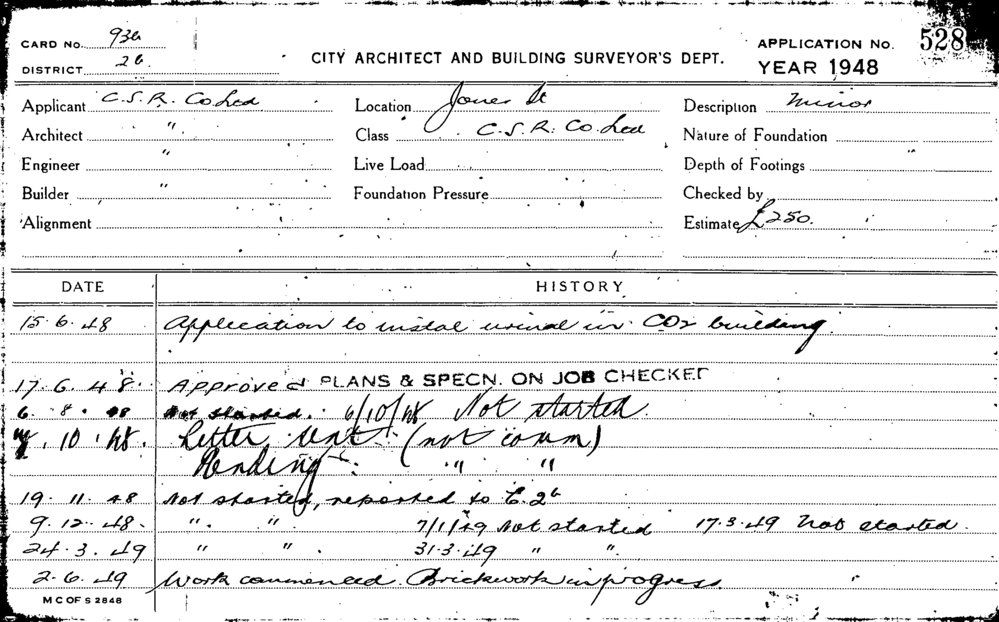 CARD No. 93b
DISTRICT 2b
CITY ARCHITECT AND BUILDING SURVEYOR'S DEPT.
APPLICATION No. 528
YEAR 1948
Applicant C.S.R. Co Ltd
Location Jones St
Description Minor
Architect "
Class C.S.R. Co. Ltd
Nature of Foundation "
Engineer "
Live Load
Depth of Footings
Builder "
Foundation Pressure
Checked by
Alignment
Estimate £250.
DATE HISTORY
15.6.48 Application to instal urinal in CO2 building.
17.6.48. Approved PLANS & SPECN. ON JOB CHECKED
6.8.48 Not started. 6/10/48 Not started.
10.48. Letter sent (not comm)
Pending " "
19.11.48 Not started, reported to C.2b
9.12.48. " " 7/1/49 Not started 17.3.49 Not started.
24.3.49 " " . 31.3.49 " ".
2.6.49 Work commenced. Brickwork in progress.
M C OF S 2848